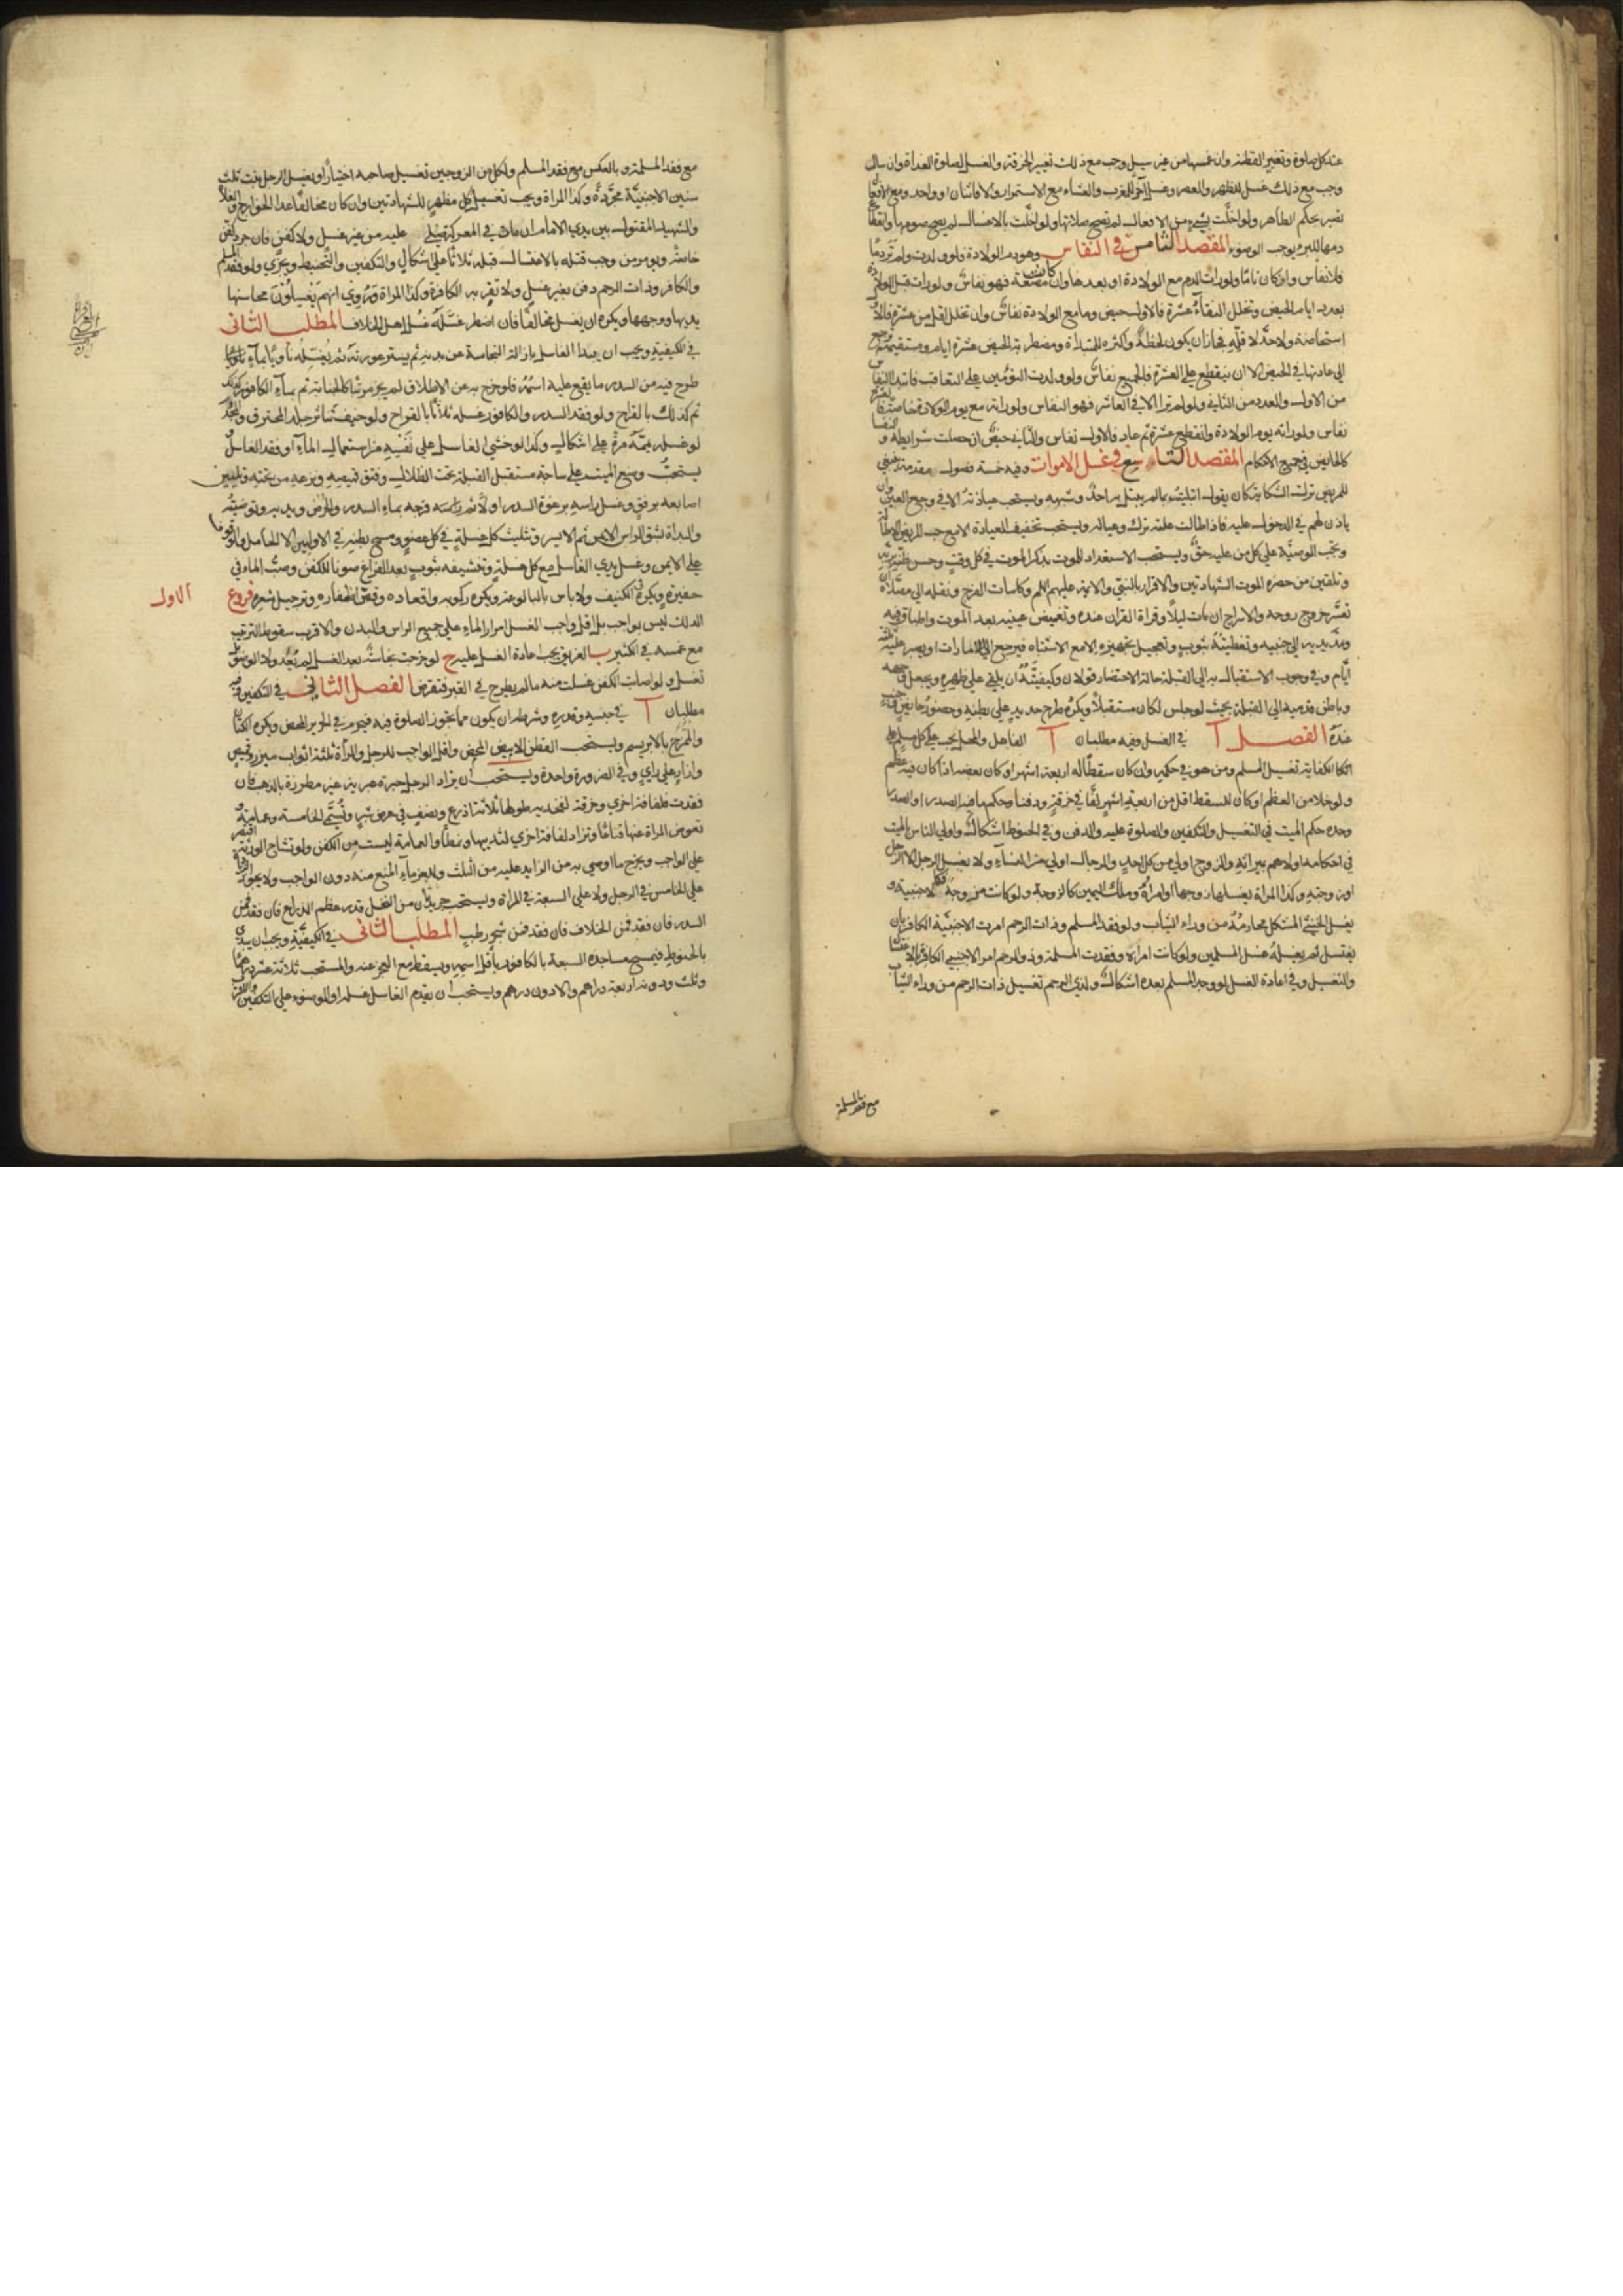 عند كل صلوة وتغيير القطنة وان غمسها من غير سيل وجب مع ذلك تغيير الخرقة والغسل لصلوة الغداة وان سال
وجب مع ذلك غسل للظهر والعصر وغسل آخر للمغرب والعشاء مع الاستمرار والا فاثنان او واحد ومع الافعال
تصير بحكم الطاهر ولو اخلت بشيء من الافعال لم تصح صلاتها ولو اخلت بالاغسال لم يصح صومها وانقطاع
دمها للبرء يوجب الوضوء المقصد الثامن في النفاس وهو دم الولادة فلو ولدت ولم تر دما
فلا نفاس وان كان تاما ولو رات الدم مع الولادة او بعدها وان كانت مضغة فهو نفاس ولو رات قبل الولادة
بعدد ايام الحيض وتخلل النقاء عشرة فالاول حيض وما مع الولادة نفاس وان تخلل اقل من عشرة فالاول
استحاضة ولا حد لاقله فجاز ان يكون لحظة واكثره للمبتدأة ومضطربة الحيض عشرة ايام ومستقيمته ترجع
الى عادتها في الحيض الا ان ينقطع على العشرة فالجميع نفاس ولو ولدت التوئمين على التعاقب فابتداء النفاس
من الاول والعدد من الثاني ولو لم تر الا في العاشر فهو النفاس ولو راته مع يوم الولادة خاصة فالعشرة
نفاس ولو راته يوم الولادة وانقطع عشرة ثم عاد فالاول نفاس والثاني حيض ان حصلت شرايطه والنفساء
كالحائض في جميع الاحكام المقصد التاسع في غسل الاموات وفيه خمسة فصول مقدمة ينبغي
للمريض ترك الشكاية كان يقول ابتليت بما لم يبتل به احد وشبهه ويستحب عيادته الا في وجع العين وان
ياذن لهم في الدخول عليه فاذا طالت علته ترك وعياله ويستحب تخفيف العيادة الا مع حب المريض الاطالة
وتجب الوصية على كل من عليه حق ويستحب الاستعداد للموت بذكر الموت في كل وقت وحسن ظنه بربه
وتلقين من حضره الموت الشهادتين والاقرار بالنبي والائمة عليهم السلم وكلمات الفرج ونقله الى مصلاه ان
تعسر خروج روحه والاسراج ان مات ليلا وقراة القران عنده وتغميض عينيه بعد الموت واطباق فيه
ومد يديه الى جنبيه وتغطيته بثوب وتعجيل تجهيزه الا مع الاشتباه فيرجع الى الامارات او يصبر عليه ثلثة
ايام وفي وجوب الاستقبال به الى القبلة حالة الاحتضار قولان وكيفيته ان يلقى على ظهره ويجعل وجهه
وباطن قدميه الى القبلة بحيث لو جلس لكان مستقبلا ويكره طرح حديد على بطنه وحضور جنب او حائض
عنده الفصل آ في الغسل وفيه مطلبان آ الفاعل والمحل يجب على كل مسلم على
الكفاية تغسيل المسلم ومن هو في حكمه وان كان سقطا له اربعة اشهر او كان بعضه اذا كان فيه عظم
ولو خلا من العظم او كان للسقط اقل من اربعة اشهر لفا في خرقة ودفنا وحكم ما فيه الصدر او الصدر
وحده حكم الميت في التغسيل والتكفين والصلوة عليه والدفن وفي الحنوط اشكال واولى الناس بالميت
في احكامه اولاهم بميراثه والزوج اولى من كل احد والرجال اولى من النساء ولا يغسل الرجل الا الرجل
او زوجته وكذا المراة يغسلها زوجها او امراة وملك اليمين كالزوجة ولو كانت مزوجة فكالاجنبية و
يغسل الخنثى المشكل محارمه من وراء الثياب ولو فقد المسلم وذات الرحم امرت الاجنبية الكافر بان
يغتسل ثم يغسله غسل المسلمين ولو كانت امراة وفقدت المسلمة وذو الرحم امر الاجنبي الكافرة بالاغتسال
والتغسيل وفي اعادة الغسل لو وجد المسلم بعده اشكال ولذي الرحم تغسيل ذات الرحم من وراء الثياب
مع فقد المسلمة
مع فقد المسلمة وبالعكس مع فقد المسلم ولكل من الزوجين تغسيل صاحبه اختيارا ويغسل الرجل بنت ثلث
سنين الاجنبية مجردة وكذا المراة ويجب تغسيل كل مظهر للشهادتين وان كان مخالفا عدا الخوارج والغلاة
والشهيد المقتول بين يدي الامام ان مات في المعركة صلي عليه من غير غسل ولا كفن فان جرد كفن
خاصة ويؤمر من وجب قتله بالاغتسال قبله ثلاثا على اشكال والتكفين والتحنيط ويجزي ولو فقد المسلم
والكافر وذات الرحم دفن بغير غسل ولا تقربه الكافرة وكذا المراة وروي انهم يغسلون محاسنها
يديها ووجهها ويكره ان يغسل مخالفا فان اضطر غسله غسل اهل الخلاف المطلب الثاني
في الكيفية ويجب ان يبدا الغاسل بازالة النجاسة عن بدنه ثم يستر عورته ثم يغسله ناويا بماء
طرح فيه من السدر ما يقع عليه اسمه فلو خرج به عن الاطلاق لم يجز مرتبا كالجنابة ثم بماء الكافور كذلك
ثم كذلك بالقراح ولو فقد السدر والكافور غسله ثلاثا بالقراح ولو خيف تناثر جلد المحترق والمجدور
لو غسله يممه مرة على اشكال وكذا لو خشي الغاسل على نفسه من استعمال الماء او فقد الغاسل
يستحب وضع الميت على ساجة مستقبل القبلة تحت الظلال وفتق قميصه ونزعه من تحته وتليين
اصابعه برفق وغسل راسه برغوة السدر اولا ثم فرجه بماء السدر والحرض ويديه وتوضيته
والبداة بشق الراس الايمن ثم الايسر وتثليث كل غسلة في كل عضو ومسح بطنه في الاوليين الا الحامل والوقوف
على الايمن وغسل يدي الغاسل مع كل غسلة وتنشيفه بثوب بعد الفراغ صونا للكفن وصب الماء في
حفيرة ويكره الكنيف ولا باس بالبالوعة ويكره ركوبه واقعاده وقص اظفاره وترجيل شعره فروع
الاول
الدلك ليس بواجب بل اقل واجب الغسل امرار الماء على جميع الراس والبدن والاقرب سقوط الترتيب
مع غمسه في الكثير ب الغريق يجب اعادة الغسل عليه ج لو خرجت نجاسة بعد الغسل لم يعد ولا الوضوء بل
تغسل ولو اصابت الكفن غسلت منه ما لم يطرح في القبر فتقرض الفصل الثاني في التكفين وفيه
مطلبان آ في جنسه وقدره وشرطه ان يكون مما يجوز الصلوة فيه فيحرم في الحرير المحض ويكره الكتان
والممتزج بالابريسم ويستحب القطن الابيض المحض واقل الواجب للرجل والمرأة ثلثة اثواب ميزر وقميص
وازار على راي وفي الضرورة واحدة ويستحب ان يزاد الرجل حبرة عبرية غير مطرزة بالذهب فان
فقدت فلفافة اخرى وخرقة لفخذيه طولها ثلاثة اذرع ونصف في عرض شبر وتسمى الخامسة وعمامة و
تعوض المراة عنها قناعا وتزاد لفافة اخرى لثدييها ونمطا والعمامة ليست من الكفن ولو تشاح الورثة اقتصر
على الواجب ويخرج ما اوصى به من الزايد عليه من الثلث وللغرماء المنع منه دون الواجب ولا يجوز الزيادة
على الخامس في الرجل ولا على السبعة في المراة ويستحب جريدتان من النخل قدر عظم الذراع فان فقد فمن
السدر فان فقد فمن الخلاف فان فقد فمن شجر رطب المطلب الثاني في الكيفية ويجب ان يبدا
بالحنوط فيمسح مساجده السبعة بالكافور باقل اسمه ويسقط مع العجز عنه والمستحب ثلاثة عشر درهما
وثلث ودونه اربعة دراهم والادون درهم ويستحب ان يقدم الغاسل غسله او الوضوء على التكفين